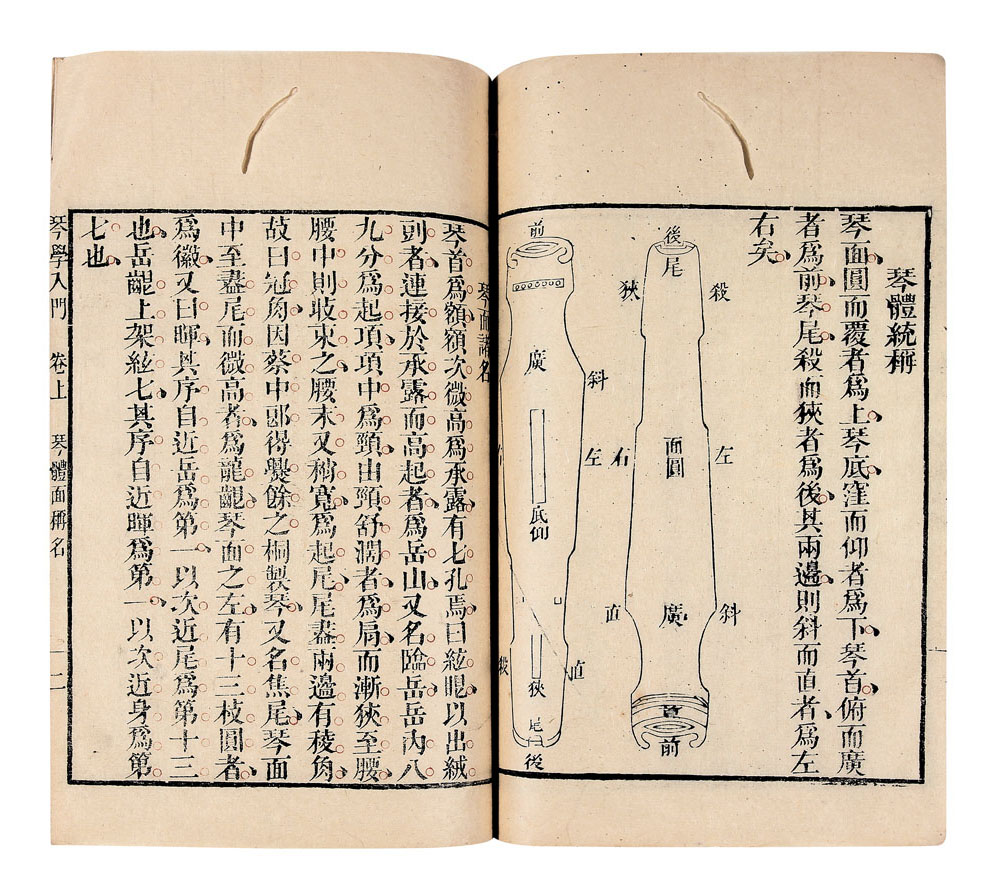 琴體統稱
琴面圓而覆者爲上琴底窪而仰者爲下琴首俯而廣
者爲前琴尾殺而狹者爲後其兩邊則斜而直者爲左
右矣
後
尾
殺
狹
左
面圓
右
斜
廣
直
前
前
廣
斜
左
底仰
直
殺
狹
尾
後
琴面諸名
琴首爲額額次微高爲承露有七孔焉曰絃眼以出絨
者連接於承露而高起者爲岳山又名臨岳岳內八
九分爲起項項中爲頸由頸舒濶者爲肩而漸狹至腰
腰中則收束之腰末又稍寬爲起尾尾盡兩邊有稜角
故曰冠角因蔡中郎得爨餘之桐製琴又名焦尾琴面
中至盡尾而微高者爲龍齦琴面之左有十三枝圓者
爲徽又曰暉其序自近岳爲第一以次近尾爲第十三
也岳齦上架絃七其序自近暉爲第一以次近身爲第
七也
琴學入門 卷上 琴體面稱名